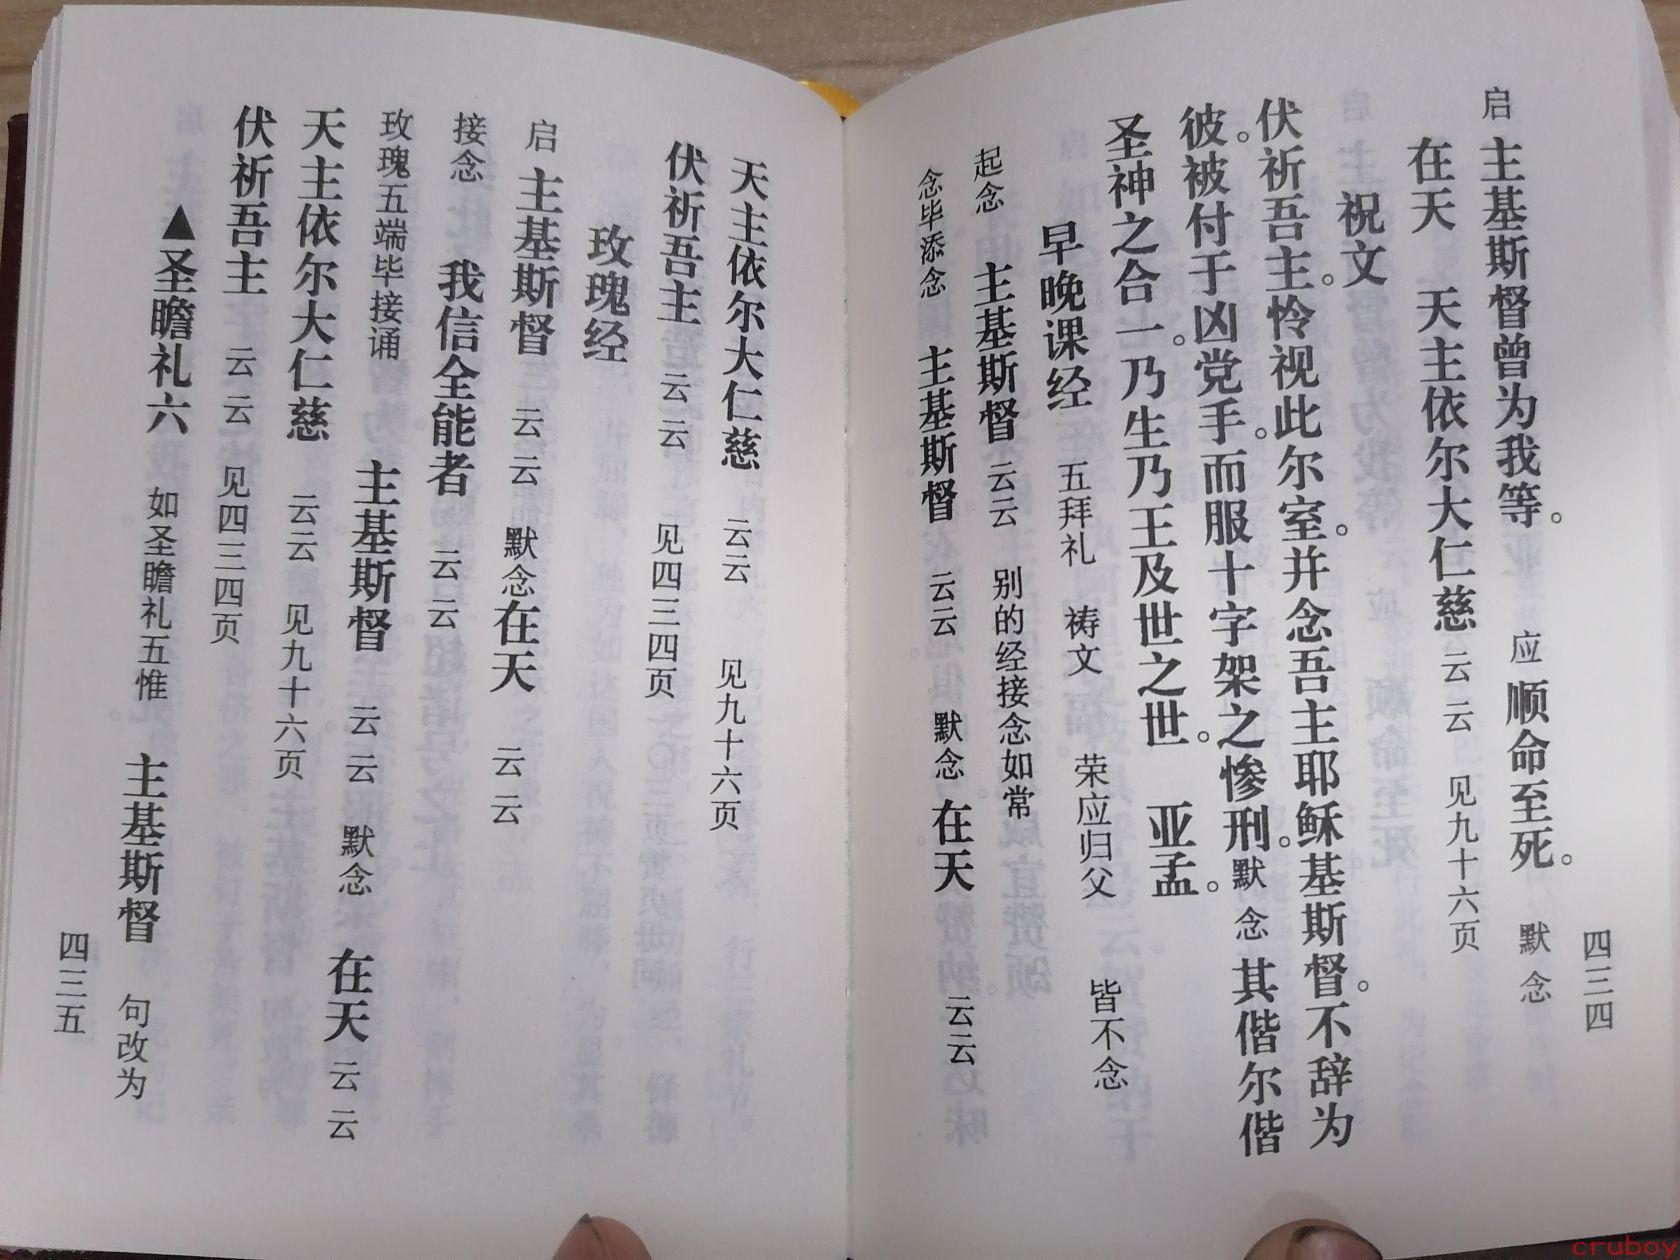 启 主基斯督曾为我等。 应 顺命至死。 默念
在天 天主依尔大仁慈 云云 见九十六页
祝文
伏祈吾主。怜视此尔室。并念吾主耶稣基斯督。不辞为
彼。被付于凶党手。而服十字架之惨刑。默念其偕尔偕
圣神之合一。乃生乃王及世之世。 亚孟。
早晚课经 五拜礼 祷文 荣应归父 皆不念
起念 主基斯督 云云 别的经接念如常
念毕添念 主基斯督 云云 默念 在天 云云
四三四
天主依尔大仁慈 云云 见九十六页
伏祈吾主 云云 见四三四页
玫瑰经
启 主基斯督 云云 默念在天 云云
接念 我信全能者 云云
玫瑰五端毕接诵 主基斯督 云云 默念 在天 云云
天主依尔大仁慈 云云 见九十六页
伏祈吾主 云云 见四三四页
▲圣瞻礼六 如圣瞻礼五惟 主基斯督 句改为
四三五
cruboy